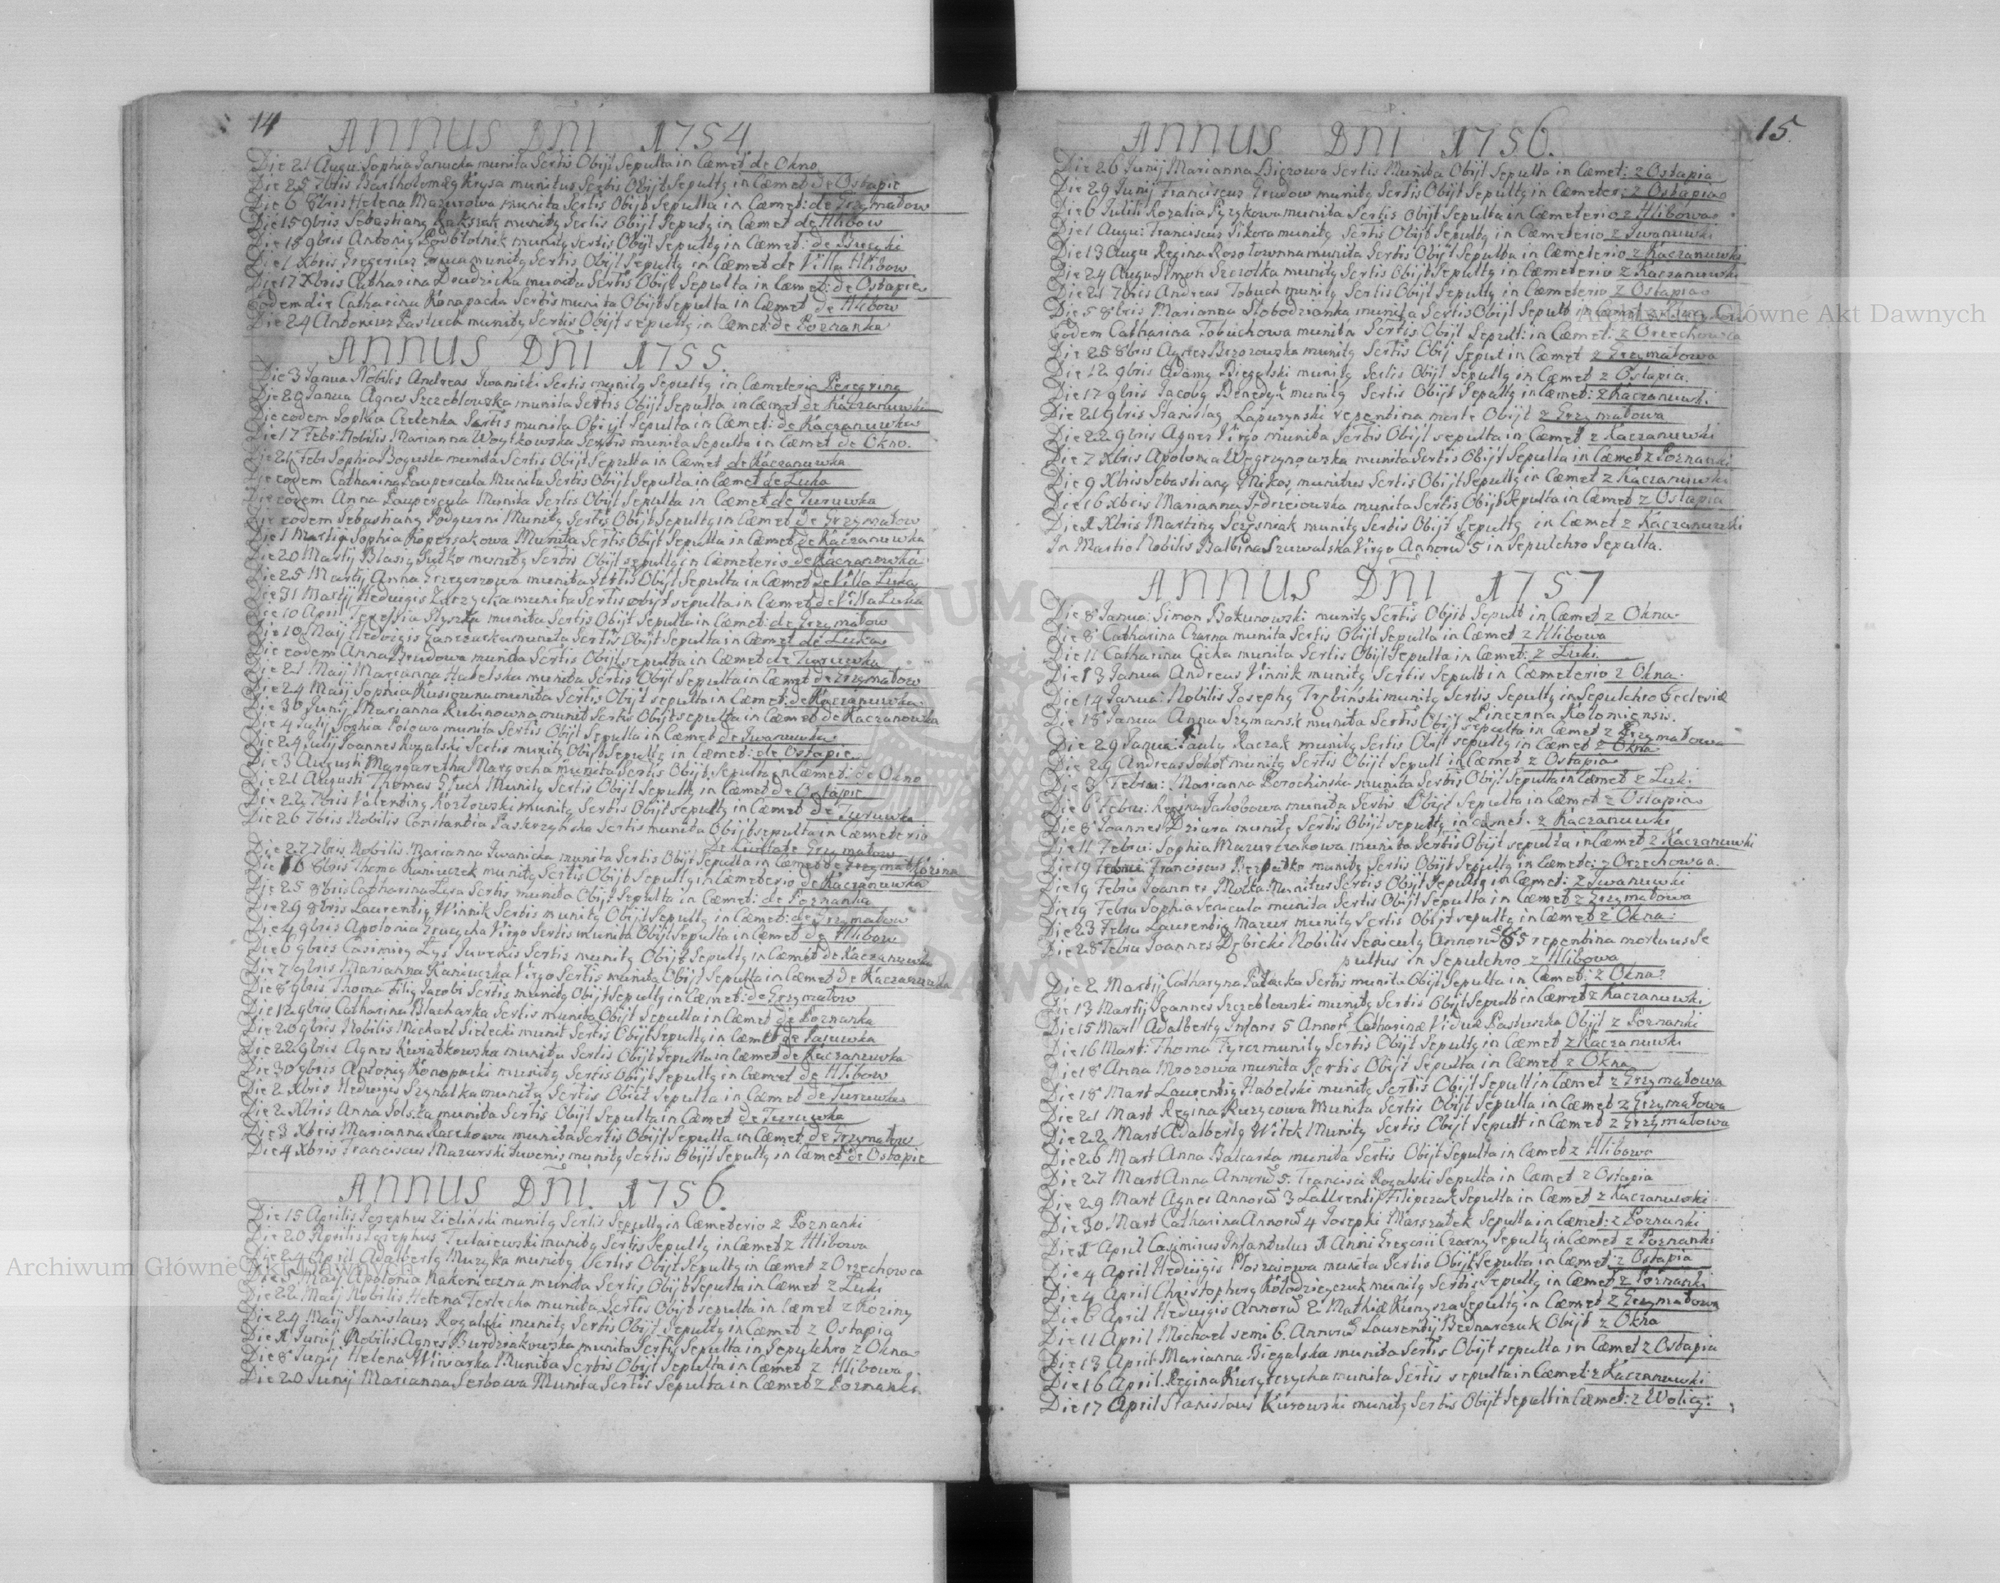 14
ANNUS DNI 1754.
Die 21 Augu: Sophia Janucka munita Sertis Obijt Sepulta in Cæmet de Okno
Die 25 7bris Bartholomęg Krysa munitus Sertis Obijt Sepultq in Cæmet de Ostapie
Die 6 8bris Helena Mazurowa munita Sertis Obijt Sepulta in Cæmet: de Grzymałow
Die 15 9bris Sebastianq munitq Sertis Obijt Sepultq in Cæmet de Hlibow
Die 18 9bris Antoniq munitq Sertis Obijt Sepultq in Cæmet: de
Die 1 Xbris Gregerius munitq Sertis Obijt Sepultq in Cæmet de Villa Hlibow
Die 17 Xbris Catharina munita Sertis Obijt Sepulta in Cæmet: de Ostapie
Eodem die Catharina Konapacka Sertis munita Obijt Sepulta in Cæmet de Hlibow
Die 24 Antonius Pastuch munitq Sertis Obijt sepultq in Cæmet de Poznanka
ANNUS DNI 1755.
Die 3 Janua Nobilis Andreas Iwanicki Sertis munitq Sepultq in Cæmeterio Peregrinq
Die 20 Janua Agnes Szczeblowska munita Sertis Obijt Sepulta in Cæmet de Kaczanuwki
Die eodem Sophia Cielenka Sertis munita Obijt Sepulta in Cæmet: de Kaczanuwka
Die 17 Febr: Nobilis Marianna Woytkowska Sertis munita Sepulta in Cæmet de Okno.
Die 21 Febr Sophia Bogusta munita Sertis Obijt Sepulta in Cæmet de Kaczanuwka
Die eodem Catharinq Paupercula Munita Sertis Obijt Sepulta in Cæmet de Luka
Die eodem Anna Paupercula Munita Sertis Obijt Sepulta in Cæmet de Turuwka
Die eodem Sebastianq Podgurni Munitq Sertis Obijt Sepultq in Cæmet de Grzymałow
Die 1 Martij Sophia Koperjakowa Munita Sertis Obijt Sepulta in Cæmet de Kaczanuwka
Die 20 Martij Blasiq munitq Sertis Obijt sepultq in Cæmeterio de Kaczanuwka
Die 25 Martij Anna Grzegorzowa munita Sertis Obijt Sepulta in Cæmet de Villa Luka
Die 31 Martij Hedwigis munita Sertis obijt sepulta in Cæmet de Villa Luka
Die 10 April Teressia munita Sertis Obijt Sepulta in Cæmet: de Grzymałow
Die 10 Maij Hedvigis munita Sertis Obijt Sepulta in Cæmet de Luka
Die eodem Anna Brudowa munita Sertis Obijt sepulta in Cæmet de Turuwka
Die 21 Maij Marianna Habelska munita Sertis Obijt Sepulta in Cæmet de Grzymałow
Die 24 Maij Sophia Rusiowna munita Sertis Obijt sepulta in Cæmet: de Kaczanuwka
Die 30 Junij Marianna Rubinowna munit Sertis Obijt sepulta in Cæmet de Kaczanowka
Die 4 Julij Sophia munita Sertis Obijt Sepulta in Cæmet de Iwanuwka
Die 24 Julij Joannes Rogalski Sertis munitq Obijt Sepultq in Cæmet: de Ostapie
Die 3 Augusti Margaretha munita Sertis Obijt Sepulta in Cæmet: de Okno
Die 21 Augusti Thomas Munitq Sertis Obijt Sepultq in Cæmet de Ostapie
Die 22 7bris Valentinq Kozłowski munitq Sertis Obijt sepultq in Cæmet de Turuwki
Die 26 7bris Nobilis Constantia Paskrzyńska Sertis munita Obijt sepulta in Cæmeterio
de Civitate Grzymałow
Die 27 7bris Nobilis Marianna Iwanicka munita Sertis Obijt Sepulta in Cæmet de Grzymał
Die 16 8bris Thoma munitq Sertis Obijt Sepultq in Cæmeterio de Kaczanuwka
Die 25 8bris Catharina Lisa Sertis munita Obijt Sepulta in Cæmet: de Poznanka
Die 29 8bris Laurentiq Winnik Sertis munitq Obijt Sepultq in Cæmet: de Grzymałow
Die 4 9bris Apolonia Virgo Sertis munita Obijt Sepulta in Cæmet de Hlibow
Die 6 9bris Casimirq Lys Iuvenis Sertis munitq Obijt Sepultq in Cæmet de Kaczanuwka
Die 7 9bris Marianna Kaniuczka Virgo Sertis munita Obijt Sepulta in Cæmet de Kaczanuwka
Die 8 9bris Thoma Filiq Jacobi Sertis munitq Obijt Sepultq in Cæmet: de Grzymałow
Die 12 9bris Catharina Blacharka Sertis munita Obijt Sepulta in Cæmet de Poznanka
Die 20 9bris Nobilis Michael Sielecki munit Sertis Obijt Sepultq in Cæmet de
Die 22 9bris Agnes Kwiatkowska munita Sertis Obijt Sepulta in Cæmet de Kaczanuwka
Die 30 9bris Antoniq Konopacki munitq Sertis Obijt Sepultq in Cæmet de Hlibow
Die 2 Xbris Hedwigis Szpnatka munita Sertis Obijt Sepulta in Cæmet de Turuwka
Die 2 Xbris Anna Solska munita Sertis Obijt Sepulta in Cæmet de Turuwka
Die 3 Xbris Marianna Raczkowa munita Sertis Obijt Sepulta in Cæmet de Grzymałow
Die 4 Xbris Franciscus Mazurski Iuvenis munitq Sertis Obijt Sepultq in Cæmet de Ostapie
ANNUS DNI. 1756.
Die 15 Aprilis Josephus Zieliński munitq Sertis Sepultq in Cæmeterio z Poznanki
Die 20 Aprilis Josephus Tulaiewski munitq Sertis Sepultq in Cæmet z Hlibowa
Die 24 April Adalbertq Muzyka munitq Sertis Obijt Sepultq in Cæmet z Orzechowca
Die 3 Maij Apolonia Nakonieczna munita Sertis Obijt Sepulta in Cæmet z Luki
Die 22 Maij Nobilis Helena Terlecka munita Sertis Obijt sepulta in Cæmet z Koziny
Die 24 Maij Stanislaus Rogalski munitq Sertis Obijt Sepultq in Cæmet z Ostapia
Die 1 Junij Nobilis Agnes Burdziakowska munita Sertis Sepulta in Sepulchro z Okna
Die 8 Junij Helena Winiarka Munita Sertis Obijt Sepulta in Cæmet z Hlibowa
Die 20 Junij Marianna Serbowa Munita Sertis Sepulta in Cæmet z Poznanki
15.
ANNUS DNI 1756.
Die 26 Junij Marianna Biezowa Sertis Munita Obijt Sepulta in Cæmet: z Ostapia
Die 29 Junij Franciscus Grudow munitq Sertis Obijt Sepultq in Cæmeter: z Ostapia
Die 6 Julili Rozalia Pyzykowa munita Sertis Obijt Sepulta in Cæmeterio z Hlibowa
Die 1 Augu: Franciscus Sikora munitq Sertis Obijt Sepultq in Cæmeterio z Iwanuwki
Die 13 Augu Regina Rosołowna munita Sertis Obijt Sepulta in Cæmeterio z Kaczanuwki
Die 24 Augu Simon Szczotka munitq Sertis Obijt Sepultq in Cæmeterio z Kaczanuwki
Die 21 7bris Andreas Tobuch munitq Sertis Obijt Sepultq in Cæmeterio z Ostapia
Die 5 8bris Marianna Słobodzianka munita Sertis Obijt Sepult in Cæmet
Eodem Catharina Tobuchowa munita Sertis Obijt Sepult: in Cæmet: z Orzechowca
Die 25 8bris Agnes Brzozowska munitq Sertis Obij Seput in Cæmet z Grzymałowa
Die 12 9bris Adamq Biegalski munitq Sertis Obijt Sepultq in Cæmet z Ostapia.
Die 17 9bris Jacobq Benedyk munitq Sertis Obijt Sepultq in Cæmet: z Kaczanuwki
Die 21 9bris Stanislaq Łapuszynski repentina morte Obijt z Grzymałowa
Die 22 9bris Agnes Virgo munita Sertis Obijt sepulta in Cæmet z Kaczanuwki
Die 7 Xbris Apolonia Węgrzynowska munita Sertis Obijt Sepulta in Cæmet z Poznanki
Die 9 Xbris Sebastianq Mikos munitus Sertis Obijt Sepultq in Cæmet z Kaczanuwki
Die 16 Xbris Marianna Jędrzeiowska munita Sertis Obijt Sepulta in Cæmet z Ostapia
Die 1 Xbris Martinq munitq Sertis Obijt Sepultq in Cæmet z Kaczanuwki
In Martio Nobilis Balbina Szuwalska Virgo Annorũ 5 in Sepulchro Sepulta.
ANNUS DNI 1757
Die 8 Janua: Simon Bakunowski munitq Sertis Obijt Sepult in Cæmet z Okna
Die 8 Catharina Czarna munita Sertis Obijt Sepulta in Cæmet z Hlibowa
Die 11 Catharina Cicha munita Sertis Obijt Sepulta in Cæmet: z Łuki
Die 13 Janua Andreas Winnik munitq Sertis Sepult in Cæmeterio z Okna.
Die 14 Janua: Nobilis Josephq Trębiński munitq Sertis Sepultq in Sepulchro Ecclesiæ
Pincerna Kolomiensis.
Die 15 Janua Anna Szymansk munita Sertis Obijt sepulta in Cæmet z Grzymałowa
Die 29 Janua: Paulq Raczak munitq Sertis Obijt sepultq in Cæmet z Okna
Die 29 Andreas Sokoł munitq Sertis Obijt Sepult in Cæmet z Ostapia
Die 3 Februa: Marianna Porochinska munita Sertis Obijt Sepulta in Cæmet z Łuki
Die 6 Febru: Jakobowa munita Sertis Obijt Sepulta in Cæmet z Ostapia
Die 8 Joannes Dziura munitq Sertis Obijt sepultq in Cæmet. z Kaczanuwki
Die 11 Febru: Sophia Mazurczakowa munita Sertis Obijt sepulta in Cæmet z Kaczanuwki
Die 19 Februi Franciscus munitq Sertis Obijt Sepultq in Cæmete: z Orzechowca.
Die 19 Febru Joannes Motka Munitus Sertis Obijt Sepultq in Cæmet: z Iwanuwki
Die 19 Febru Sophia Senicula munita Sertis Obijt Sepulta in Cæmet z Grzymałowa
Die 23 Febru Laurentiq Mazur munitq Sertis Obijt sepultq in Cæmet z Okna:
Die 28 Febru Joannes Dębicki Nobilis Seniculq Annorũ 85 repentina mortuus Se
pultus in Sepulchro z Hlibowa
Die 2 Martij Catharyna Sertis munita Obijt Sepulta in Cæmet: z Okna:
Die 13 Martij Joannes Szczeblowski munitq Sertis Obijt Sepult in Cæmet z Kaczanuwki
Die 15 Mart Adalbertq Infans 5 Annor Catharinæ Viduæ Pastuszka Obijt z Poznanki
Die 16 Mart: Thoma munitq Sertis Obijt Sepultq in Cæmet z Kaczanuwki
Die 18 Anna Mrozowa munita Sertis Obijt Sepulta in Cæmet z Okna
Die 18 Mart Laurentiq Habelski munitq Sertis Obijt Sepult in Cæmet z Grzymałowa
Die 21 Mart Regina Kuzycowa Munita Sertis Obijt Sepulta in Cæmet z Grzymałowa
Die 22 Mart Adalbertq Witek Munitq Sertis Obijt Sepult in Cæmet z Grzymałowa
Die 26 Mart Anna Bakarka munita Sertis Obijt Sepulta in Cæmet z Hlibowa
Die 27 Mart Anna Annorũ 5. Francisci Rogalski Sepulta in Cæmet z Ostapia
Die 29 Mart Agnes Annorũ 3 Laurentij Filipczak Sepulta in Cæmet z Kaczanuwki
Die 30 Mart Catharina Annorũ 4 Josephi Marszałek Sepulta in Cæmet: z Poznanki
Die 1 April Casimirus Infantulus 1 Anni Gregorii Czarny Sepultq in Cæmet z Poznanki
Die 4 April Heduigis munita Sertis Obijt Sepulta in Cæmet: z Ostapia
Die 4 April Christophorq Kołodzieyczuk munitq Sertis Sepultq in Cæmet z Poznanki
Die 6 April Heduigis Annorũ 2 Mathiæ Kunysza Sepultq in Cæmet z Grzymałowa
Die 11 April Michael semi 6. Annorũ Laurentij Bednarczuk Obijt z Okna
Die 13 April Marianna Biegalska munita Sertis Obijt sepulta in Cæmet z Ostapia
Die 16 April Regina munita Sertis sepulta in Cæmet: z Kaczanuwki
Die 17 April Stanislaus Kurowski munitq Sertis Obijt Sepult in Cæmet: z Wolicy.
Archiwum Główne Akt Dawnych
Archiwum Główne Akt Dawnych